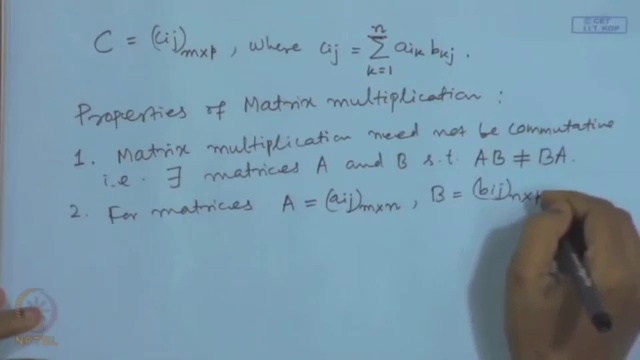 © CET
I.I.T. KGP
C = (cij)m×p, where cij = Σ_{k=1}^{n} aik bkj.
Properties of Matrix multiplication:
1. Matrix multiplication need not be commutative
i.e. ∃ matrices A and B s.t. AB ≠ BA.
2. For matrices A = (aij)m×n, B = (bij)n×p
NPTEL